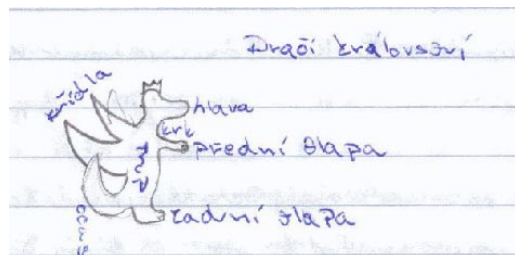 Dračí království
křídla
hlava
krk
přední tlapa
trup
zadní tlapa
ocas